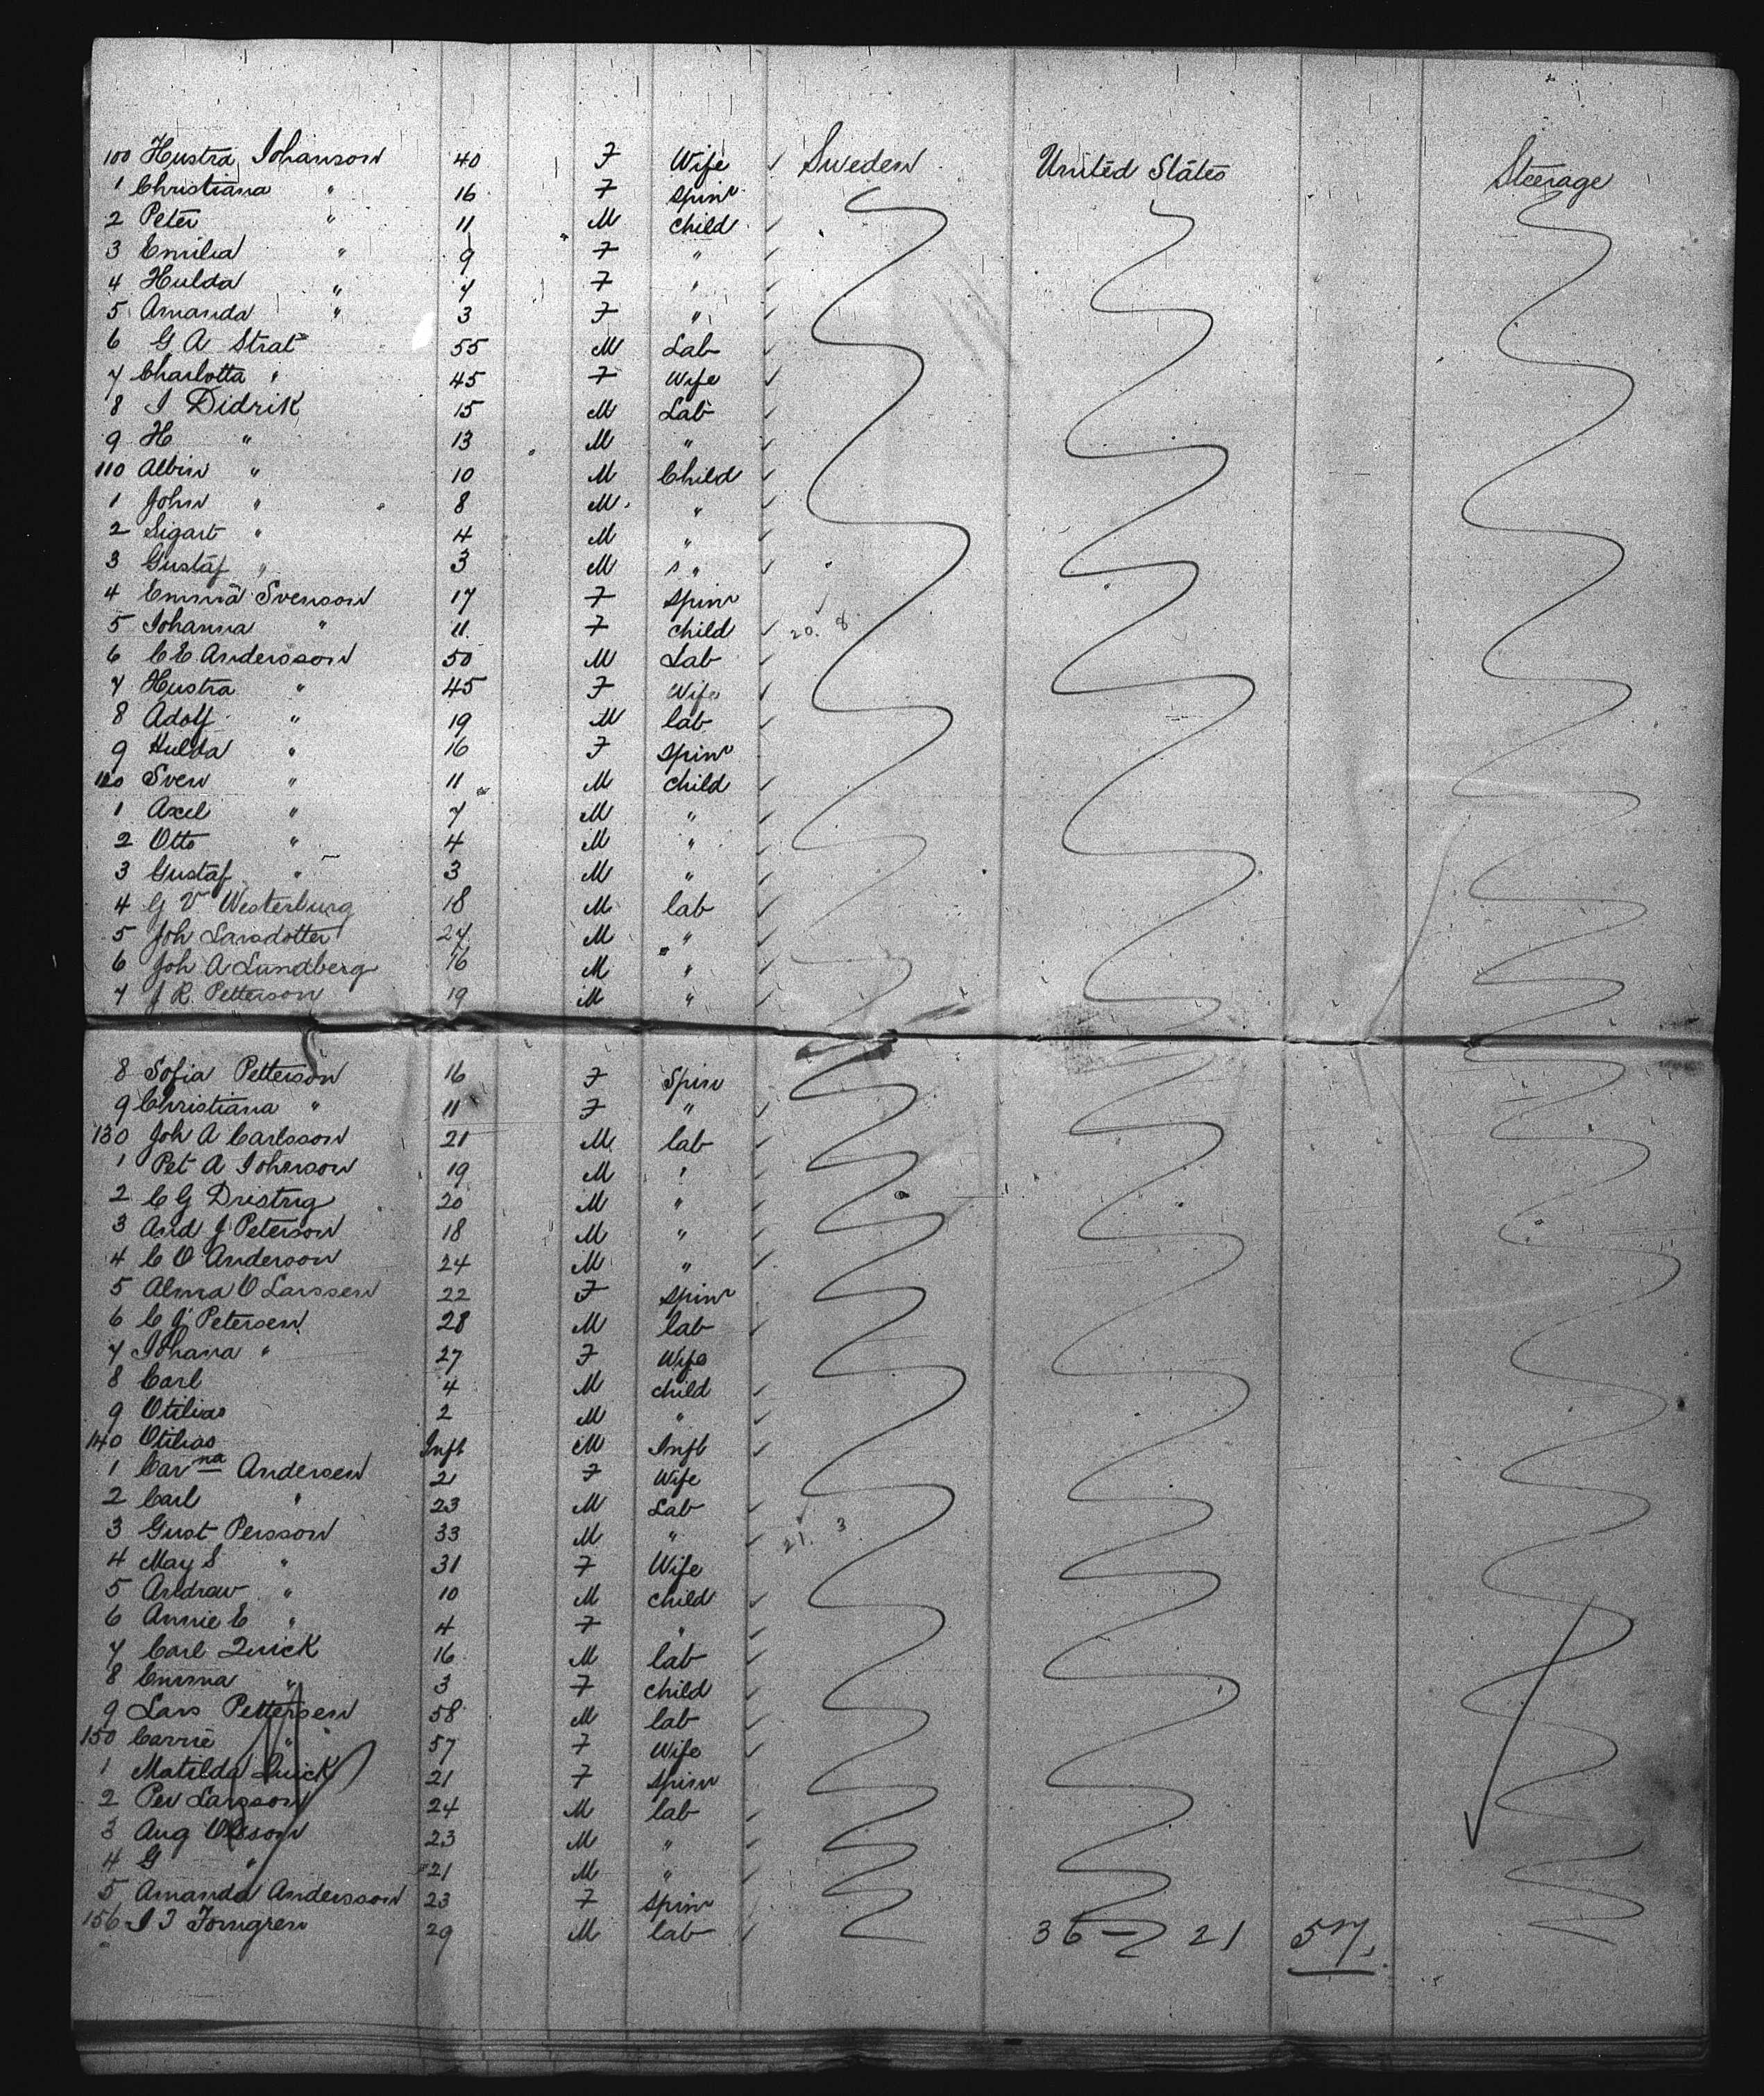 100 Hustra Johanson 40 F Wife ✓ Sweden United States Steerage
1 Christiana " 16 F Spinr
2 Peter " 11 M child ✓
3 Emilia " 9 F " ✓
4 Hulda " 7 F " ✓
5 Amanda " 3 F " ✓
6 G A Strat 55 M Lab ✓
7 Charlotta " 45 F Wife ✓
8 J Didrik 15 M Lab ✓
9 H " 13 M " ✓
110 Albin " 10 M Child ✓
1 John " 8 M " ✓
2 Sigart " 4 M " ✓
3 Gustaf " 3 M " ✓
4 Emma Svenson 17 F Spinr
5 Johanna " 11 F child ✓ 20. 8
6 C E Andersson 50 M Lab ✓
7 Hustra " 45 F Wife ✓
8 Adolf " 19 M lab ✓
9 Hulda " 16 F Spinr
120 Sven " 11 M child ✓
1 Axel " 7 M " ✓
2 Otto " 4 M " ✓
3 Gustaf " 3 M " ✓
4 G V Westerburg 18 M lab ✓
5 Joh Larsdotter 24 M " ✓
6 Joh A Lundberg 16 M " ✓
7 J R Petterson 19 M " ✓
8 Sofia Petterson 16 F Spin
9 Christiana " 11 F " ✓
130 Joh A Carlsson 21 M lab ✓
1 Pet A Johnson 19 M " ✓
2 C G Dristrig 20 M " ✓
3 And J Peterson 18 M " ✓
4 C O Anderson 24 M " ✓
5 Alma O Larssen 22 F Spinr
6 C J Petersen 28 M lab ✓
7 Johana " 27 F Wife
8 Carl 4 M child ✓
9 Otilias 2 M " ✓
140 Otilias Inft M Inft ✓
1 Carna Andersen 21 F Wife
2 Carl " 23 M Lab ✓
3 Gust Persson 33 M " ✓ 21. 3
4 May S " 31 F Wife
5 Andraw " 10 M child ✓
6 Annie E " 4 F " ✓
7 Carl Quick 16 M lab ✓
8 Emma " 3 F child ✓
9 Lars Pettersen 58 M lab ✓
150 Carrie " 57 F Wife ✓
1 Matilda Quick 21 F Spinr
2 Per Larsson 24 M lab ✓
3 Aug Olsson 23 M " ✓
4 G " 21 M " ✓
5 Amanda Andersson 23 F Spinr
156 J T Forngren 29 M lab ✓ 36 — 21 57